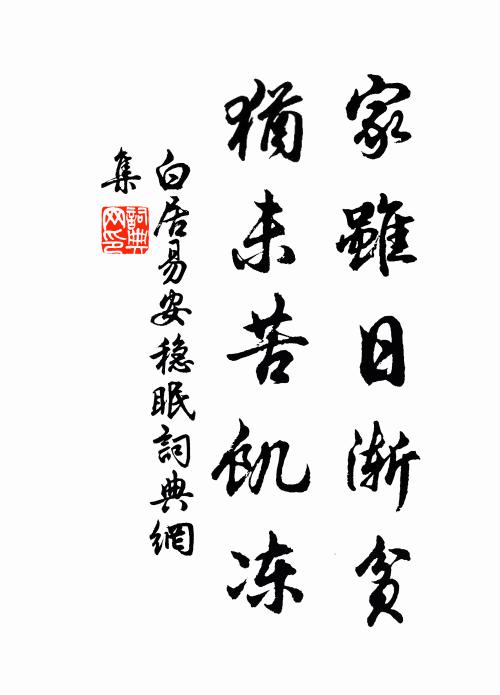 家雖日漸貧
猶未苦飢冻
白居易安穏眠詞典網
集
詞典
网印